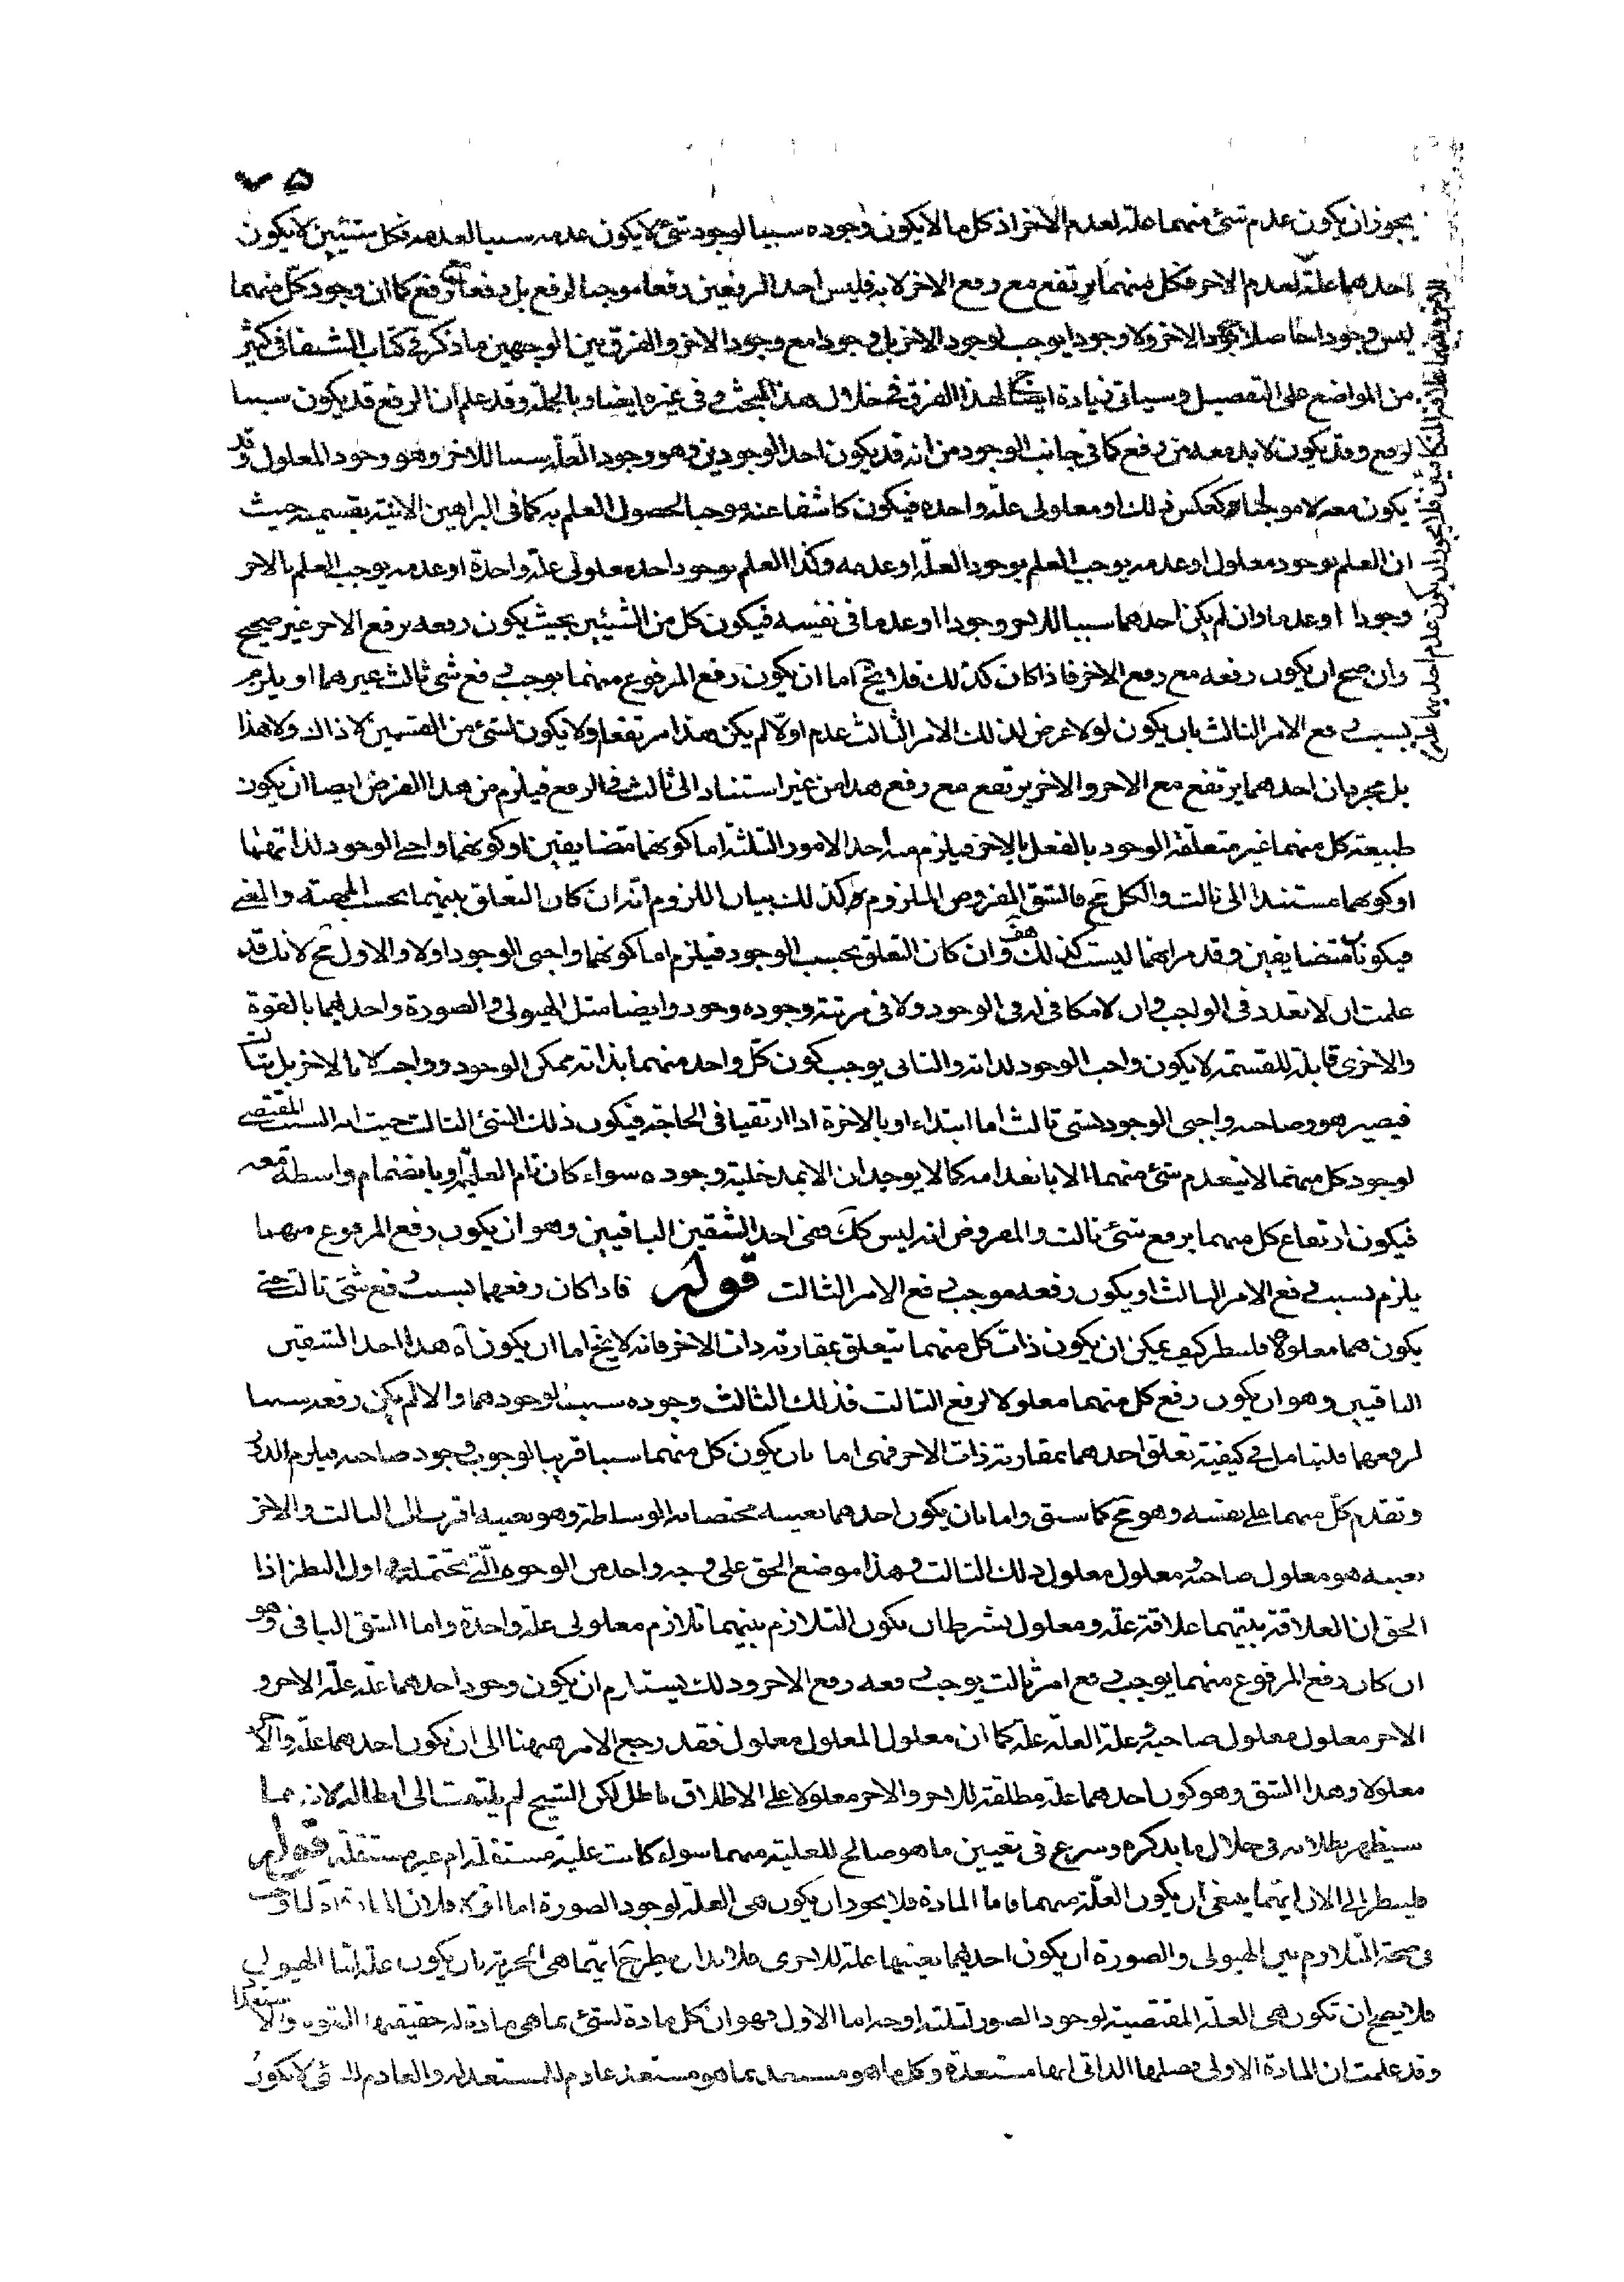 ۷۵
يجوز ان يكون عدم شئ منهما علة لعدم الاخر اذ كل ما لا يكون وجوده سببا لوجود شئ لا يكون عدمه سببا لعدمه فكل شيئين لا يكون
احدهما علة لعدم الاخر فكل منهما يرتفع مع رفع الاخر لا به فليس احد الرفعين رفعا موجبا لرفع بل رفعا مع رفع كما ان وجود كل منهما
ليس وجودا حاصلا بوجود الاخر ولا وجودا يوجب لوجود الاخر بل وجودا مع وجود الاخر والفرق بين الوجهين ما ذكر فى كتاب الشفا فى كثير
من المواضع على التفصيل وسياتى زيادة ايضاح لهذا الفرق فى خلال هذا المبحث وفى غيره ايضا وبالجملة وقد علم ان الرفع قد يكون سببا
لرفع وقد يكون لا بد معه من رفع كما فى جانب الوجود من انه قد يكون احد الوجودين وهو وجود العلة سببا للاخر وهو وجود المعلول وقد
يكون معه لا موجبا له كعكس ذلك او معلولى علة واحدة فيكون كاشفا عنه وموجبا لحصول العلم به كما فى البراهين الانية بقسميه حيث
ان العلم بوجود معلول او عدمه يوجب العلم بوجود العلة او عدمه وكذا العلم بوجود احد معلولى علة واحدة او عدمه يوجب العلم بالاخر
وجودا او عدما وان لم يكن احدهما سببا للاخر وجودا او عدما فى نفسه فيكون كل من الشيئين بحيث يكون رفعه برفع الاخر غير صحيح
وان صح ان يكون رفعه مع رفع الاخر فاذا كان كذلك فلا يخ اما ان يكون رفع المرفوع منهما يوجب رفع شئ ثالث غيرهما او يلزم
بسبب رفع الامر الثالث بان يكون لولا عرض لذلك الامر الثالث عدم اولا لم يكن هذا مرتفعا ولا يكون لشئ من القسمين لا ذاك ولا هذا
بل مجرد ان احدهما يرتفع مع الاخر والاخر يرتفع مع رفع هذا من غير استناد الى ثالث فى الرفع فيلزم من هذا الفرض ايضا ان يكون
طبيعة كل منهما غير متعلقة الوجود بالفعل بالاخر فيلزم منه احد الامور الثلثة اما كونهما متضايفين او كونهما واجبى الوجود لذاتهما
او كونهما مستندا الى ثالث والكل مح فالشق المفروض الملزوم كذلك بيان اللزوم انه ان كان التعلق بينهما بحسب المهية والمعنى
فيكونا متضايفين وقد مر انهما ليست كذلك هف وان كان التعلق بحسب الوجود فيلزم اما كونهما واجبى الوجود اولا والاول مح لانك قد
علمت ان لا تعدد فى الواجب وان لا مكافى له فى الوجود ولا فى مرتبة وجوده وجود وايضا مثل الهيولى والصورة واحدهما بالقوة
والاخرى قابلة للقسمة لا يكون واجب الوجود لذاته والثانى يوجب كون كل واحد منهما بذاته ممكن الوجود وواجبا لا بالاخر بل بثالث
فيصير هو وصاحبه واجبى الوجود بشئ ثالث اما ابتداء او بالاخرة اذا ارتقيا فى الحاجة فيكون ذلك الشئ الثالث حيث انه السبب المقتضى
لوجود كل منهما لا ينعدم شئ منهما الا بانعدامه كما لا يوجدان الا بمدخلية وجوده سواء كان تام العلية او بانضمام واسطة معه
فيكون ارتفاع كل منهما برفع شئ ثالث والمفروض انه ليس كك فبقى احد الشقين الباقيين وهو ان يكون رفع المرفوع منهما
يلزم بسبب رفع الامر الثالث او يكون رفعه موجب رفع الامر الثالث قوله فاذا كان رفعهما بسبب رفع شئ ثالث حتى
يكون هما معلولاه فلينظر كيف يمكن ان يكون ذات كل منهما يتعلق بمقارنة ذات الاخر فانه لا يخ اما ان يكون آه هذا احد الشقين
الباقيين وهو ان يكون رفع كل منهما معلولا لرفع الثالث فذلك الثالث وجوده سببا لوجودهما والا لم يكن رفعه سببا
لرفعهما فلنتامل فى كيفية تعلق احدهما بمقارنة ذات الاخر فهى اما بان يكون كل منهما سببا قريبا لوجوب وجود صاحبه فيلزم الدور
وتقدم كل منهما على نفسه وهو مح كما سبق واما بان يكون احدهما بعينه مختصا بالوساطة وهو بعينه اقرب الى الثالث والاخر
بعينه هو معلول صاحبه ومعلول معلول ذلك الثالث وهذا موضع الحق على وجه واحد من الوجوه التى تحتمله فى اول النظر اذا
الحق ان العلاقة بينهما علاقة علة ومعلول بشرط ان يكون التلازم بينهما تلازم معلولى علة واحدة واما الشق الباقى وهو
ان كان رفع المرفوع منهما يوجب رفع امر ثالث يوجب رفعه رفع الاخر وذلك يستلزم ان يكون وجود احدهما علة علة الاخر و
الاخر معلول معلول صاحبه وعلة العلة علة كما ان معلول المعلول معلول فقد رجع الامر ههنا الى ان يكون احدهما علة والاخر
معلولا وهذا الشق وهو كون احدهما علة مطلقة للاخر والاخر معلولا على الاطلاق باطل لكن الشيخ لم يلتفت الى ابطاله لانه مما
سيظهر بطلانه فى خلال ما يذكره وسرع فى تعيين ما هو صالح للعلية منهما سواء كانت علية مستقلة ام غير مستقلة قوله
فلينظر الى الان ايهما ينبغى ان يكون العلة منهما فاما المادة فلا يجوز ان يكون هى العلة لوجود الصورة اما اولا فلان المادة
فى صحة التلازم بين الهيولى والصورة ان يكون احدهما بعينها علة للاخرى فلا بد ان ينظر ايتهما هى الحرية بان يكون علة اما الهيولى
فلا يصح ان تكون هى العلة المقتضية لوجود الصورة لثلثة اوجه اما الاول فهو ان كل مادة لشئ بما هى مادة له حقيقتها القوة والاستعداد
وقد علمت ان المادة الاولى فصلها الذاتى انها مستعدة وكل ما هو مستعد بما هو مستعد عادم للمستعد له والعادم للشئ لا يكون